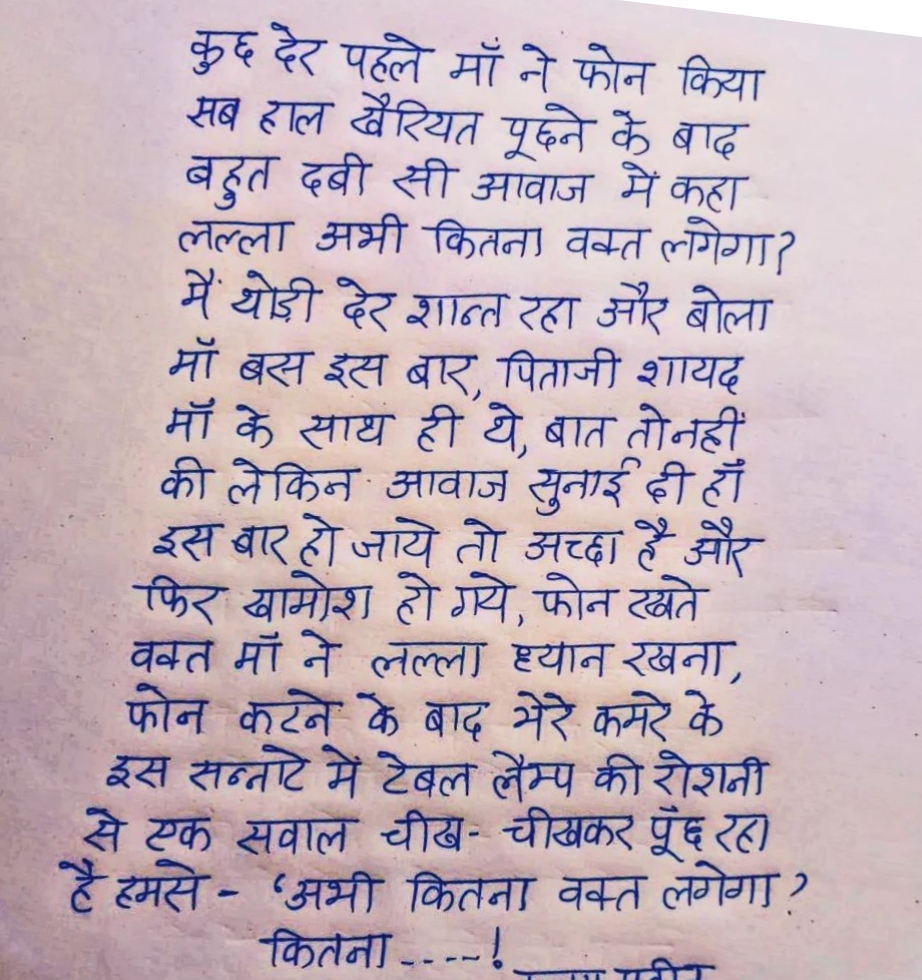 कुछ देर पहले माँ ने फोन किया
सब हाल खैरियत पूछने के बाद
बहुत दबी सी आवाज में कहा
लल्ला अभी कितना वक्त लगेगा?
मैं थोड़ी देर शान्त रहा और बोला
माँ बस इस बार, पिताजी शायद
माँ के साथ ही थे, बात तो नहीं
की लेकिन आवाज सुनाई दी हाँ
इस बार हो जाये तो अच्छा है और
फिर खामोश हो गये, फोन रखते
वक्त माँ ने लल्ला ध्यान रखना,
फोन कटने के बाद मेरे कमरे के
इस सन्नाटे में टेबल लैम्प की रोशनी
से एक सवाल चीख- चीखकर पूँछ रहा
है हमसे - 'अभी कितना वक्त लगेगा?
कितना ----!